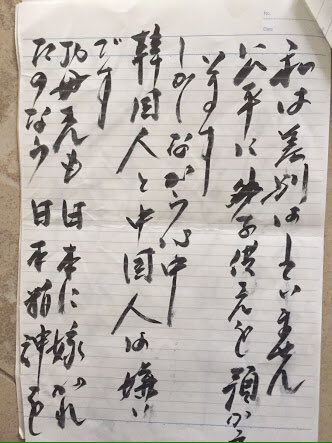 No.
Date
私は差別はしていません
公平に お子供さんを預かっ
います
しかしながら心中
韓国人と中国人は嫌い
です
お母さんも日本に嫁がれ
たのなら日本精神を